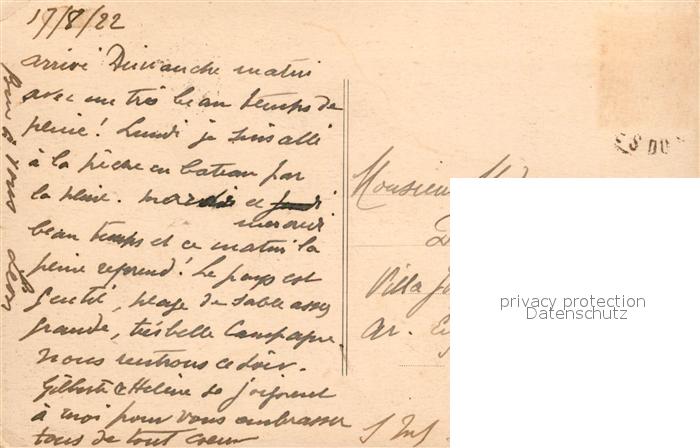 17/8/22
arrivé Dimanche matin
avec un très beau temps de
pluie! Lundi je suis allé
à la pêche en bateau par
la pluie. mardi et jeudi
mercredi
beau temps et ce matin la
pluie reprend! Le pays est
gentil, plage de sable assez
grande, très belle campagne.
nous rentrons ce soir.
Gilberte & Helène se joignent
à moi pour vous embrasser
tous de tout coeur
Bien à vous
Léon
ES DU
Monsieur
Villa
Av.
privacy protection
Datenschutz